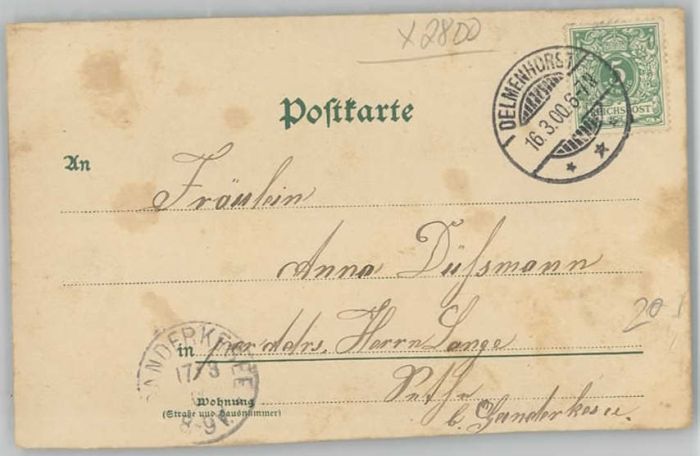 x 2800
Postkarte
DELMENHORST
16.3.00.6-7N
5
REICHSPOST
An
Fräulein
Anna Düßmann
in per adrs. Herrn Lange
20
GANDERKESEE
17/3
8-9V.
Wohnung
(Straße und Hausnummer)
b. Ganderkesee.